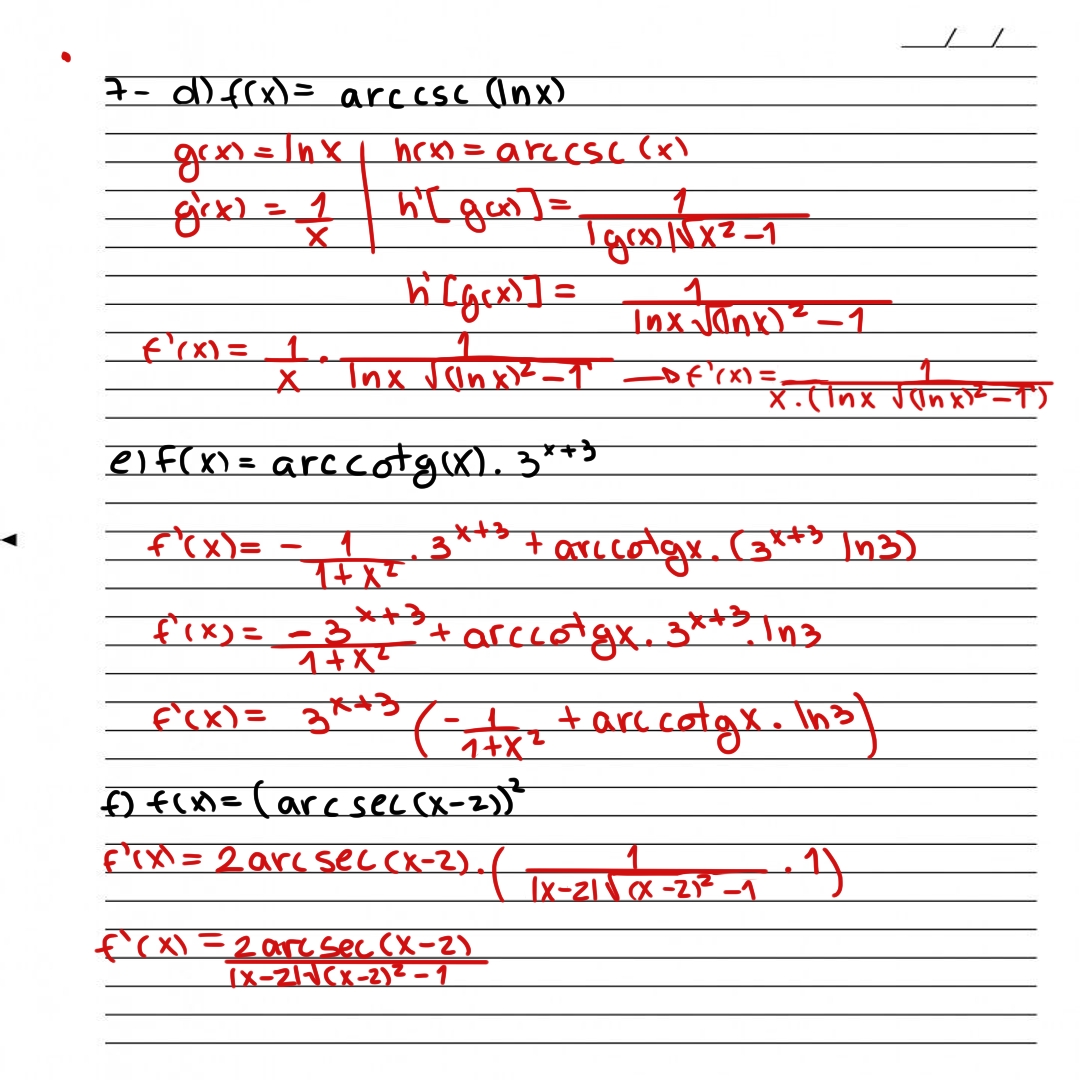 __/__/__
7- d) f(x) = arccsc (lnx)
g(x) = ln x | h(x) = arccsc (x)
g'(x) = 1/x | h'[g(x)] = 1/(|g(x)|√x² - 1)
h'[g(x)] = 1/(lnx √(lnx)² - 1)
f'(x) = 1/x · 1/(lnx √(lnx)² - 1) → f'(x) = 1/(x · (lnx √(lnx)² - 1))
e) f(x) = arccotg(x) . 3^(x+3)
f'(x) = - 1/(1+x²) . 3^(x+3) + arccotgx . (3^(x+3) ln3)
f'(x) = -3^(x+3)/(1+x²) + arccotgx . 3^(x+3) . ln3
f'(x) = 3^(x+3) (- 1/(1+x²) + arccotgx . ln3)
f) f(x) = (arcsec(x-2))²
f'(x) = 2arcsec(x-2) . (1/(|x-2|√(x-2)² - 1) . 1)
f'(x) = 2arcsec(x-2)/(|x-2|√(x-2)² - 1)